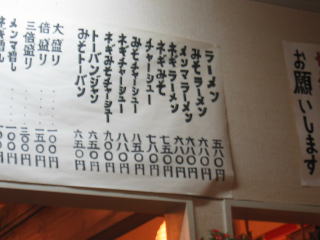 ラーメン 五八〇円
みそラーメン 六八〇円
メンマラーメン
ネギラーメン
ネギみそ 七八〇円
チャーシュー 七八〇円
みそチャーシュー 八五〇円
ネギチャーシュー 八八〇円
ネギみそチャーシュー 九〇〇円
トーバンジャン 六五〇円
みそトーバン 六五〇円
大盛り 一〇〇円
倍盛り 一五〇円
三倍盛り 三〇〇円
メンマ増し 一〇〇円
お願いします